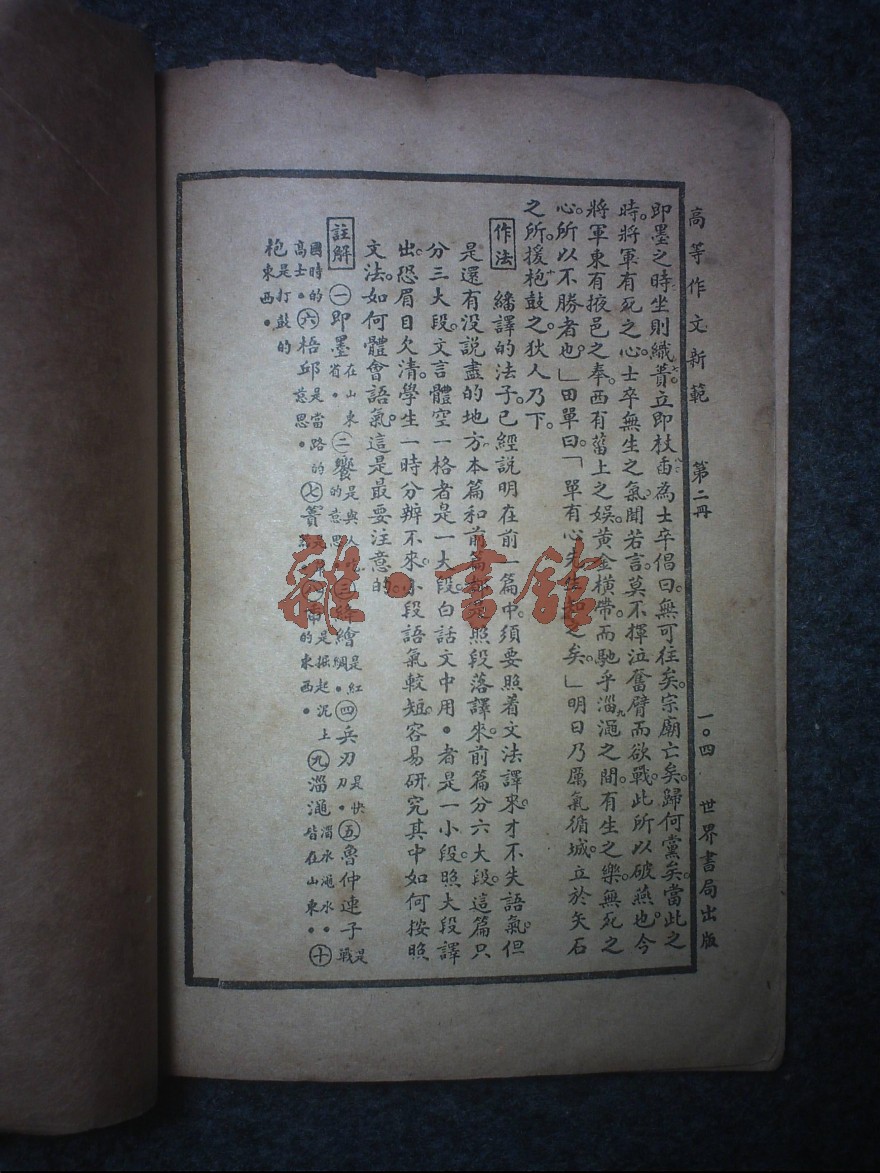 高等作文新範 第二冊 一〇四 世界書局出版
即墨之時坐則織蕢立即杖臿為士卒倡曰無可往矣宗廟亡矣歸何黨矣當此之
時將軍有死之心士卒無生之氣聞若言莫不揮泣奮臂而欲戰此所以破燕也今
將軍東有掖邑之奉西有菑上之娱黃金橫帶而馳乎淄澠之間有生之樂無死之
心所以不勝者也」田單曰「單有心先生之矣」明日乃厲氣循城立於矢石
之所援枹鼓之狄人乃下
作法 繙譯的法子已經説明在前一篇中須要照着文法譯來才不失語氣但
是還有没説盡的地方本篇和前篇都是照段落譯來前篇分六大段這篇只
分三大段文言體空一格者是一大段白話文中用●者是一小段照大段譯
出恐眉目欠清學生一時分辨不來小段語氣較短容易研究其中如何按照
文法如何體會語氣這是最要注意的
註解 ㊀即墨在山東省●㊁饗是與人的意思㊂絳繒是紅綢●㊃兵刃是快刀●㊄魯仲連子是戰
國時的高士●㊅梧邱是當路的意思●㊆蕢㊇臿是掘起沉上的東西●㊈淄澠淄水澠水●皆在山東●㊉
枹是打鼓的東西●
雜·書館